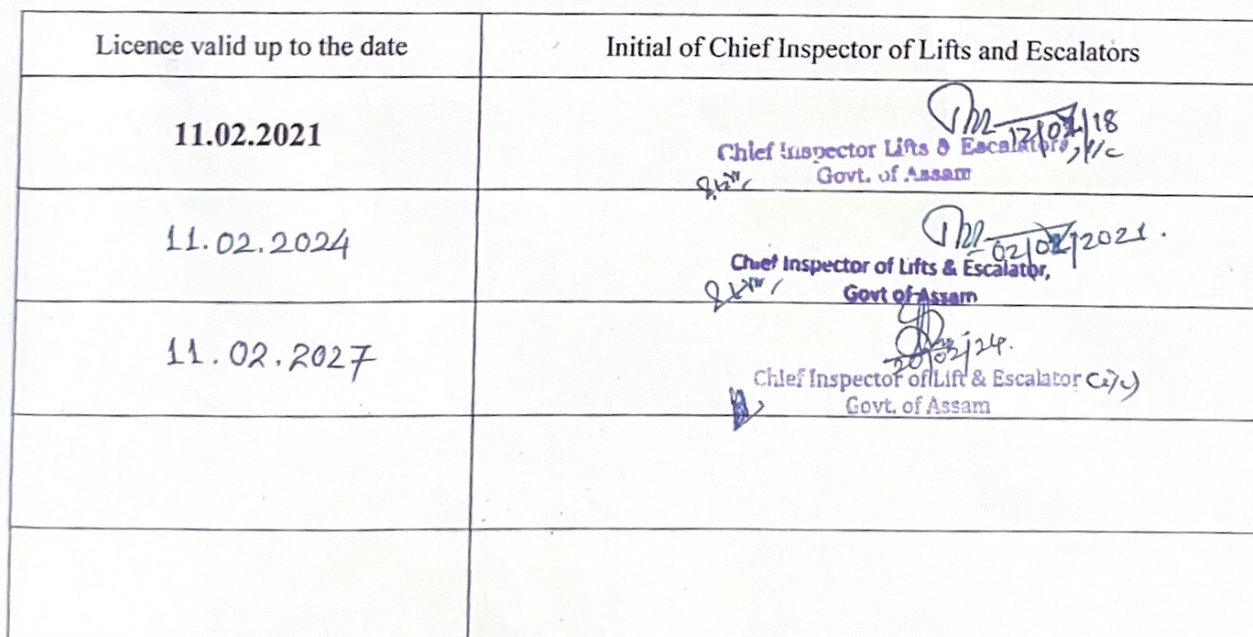 Licence valid up to the date
Initial of Chief Inspector of Lifts and Escalators
11.02.2021
12/02/18
Chief Inspector Lifts & Escalators, i/c
Govt. of Assam
11.02.2024
02/02/2021.
Chief Inspector of Lifts & Escalator,
Govt of Assam
11.02.2027
20/02/24.
Chief Inspector of Lift & Escalator (i/c)
Govt. of Assam